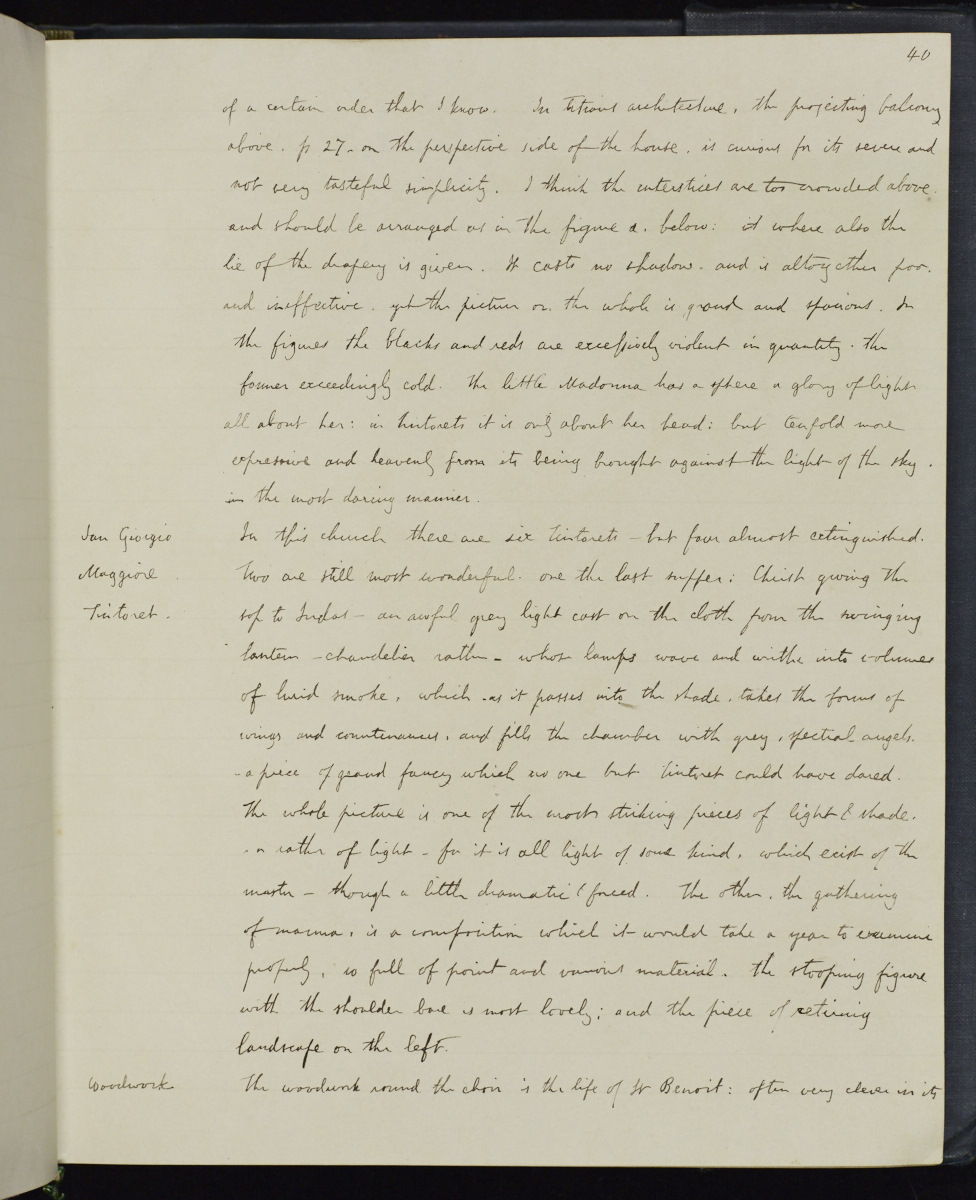 40
of a certain order that I know. In Titians architecture, the projecting balcony
above. p 27. on the perspective side of the house. is curious for its severe and
not very tasteful simplicity. I think the interstices are too crowded above.
and should be arranged as in the figure a. below: it where also the
lie of the drapery is given. It casts no shadow. and is altogether poor.
and ineffective. yet the picture on the whole is grand and spacious. In
the figures the blacks and reds are excessively violent in quantity. the
former exceedingly cold. The little Madonna has a sphere a glory of light
all about her: in Tintorets it is only about her head: but tenfold more
expressive and heavenly from its being brought against the light of the sky.
in the most daring manner.
San Giorgio
Maggiore.
Tintoret.
In this church there are six Tintorets – but four almost extinguished.
Two are still most wonderful. one the last supper: Christ giving the
sop to Judas – an awful grey light cast on the cloth from the swinging
lantern – chandelier rather – whose lamps wave and writhe into volumes
of lurid smoke, which as it passes into the shade, takes the forms of
wings and countenances, and fills the chamber with grey, spectral angels.
– a piece of grand fancy which no one but Tintoret could have dared.
The whole picture is one of the most striking pieces of light & shade.
– or rather of light – for it is all light of some kind, which exist of the
master – though a little dramatic & forced. The other, the gathering
of manna, is a composition which it would take a year to examine
properly, so full of point and various material. The stooping figure
with the shoulder bare is most lovely; and the piece of retiring
landscape on the left.
Woodwork
The woodwork round the choir is the life of St Benoit: often very clever in its